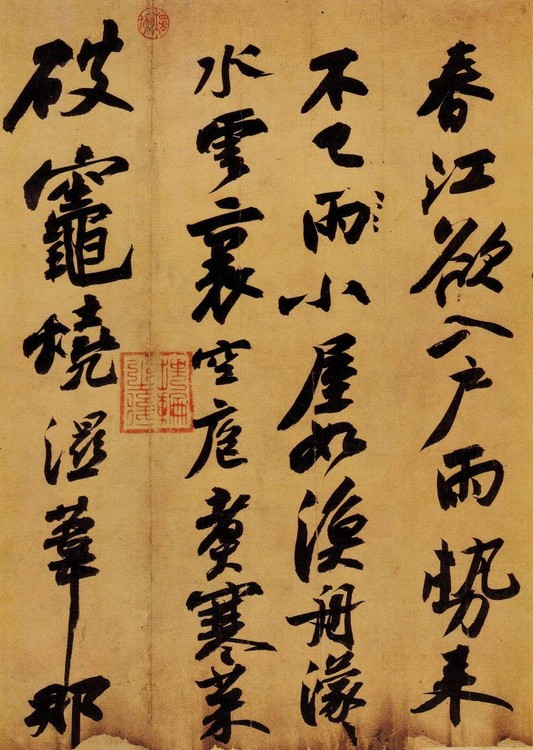 春江欲入户雨勢来
不已雨小屋如漁舟濛
水雲裏空庖煑寒菜
破竈燒濕葦那